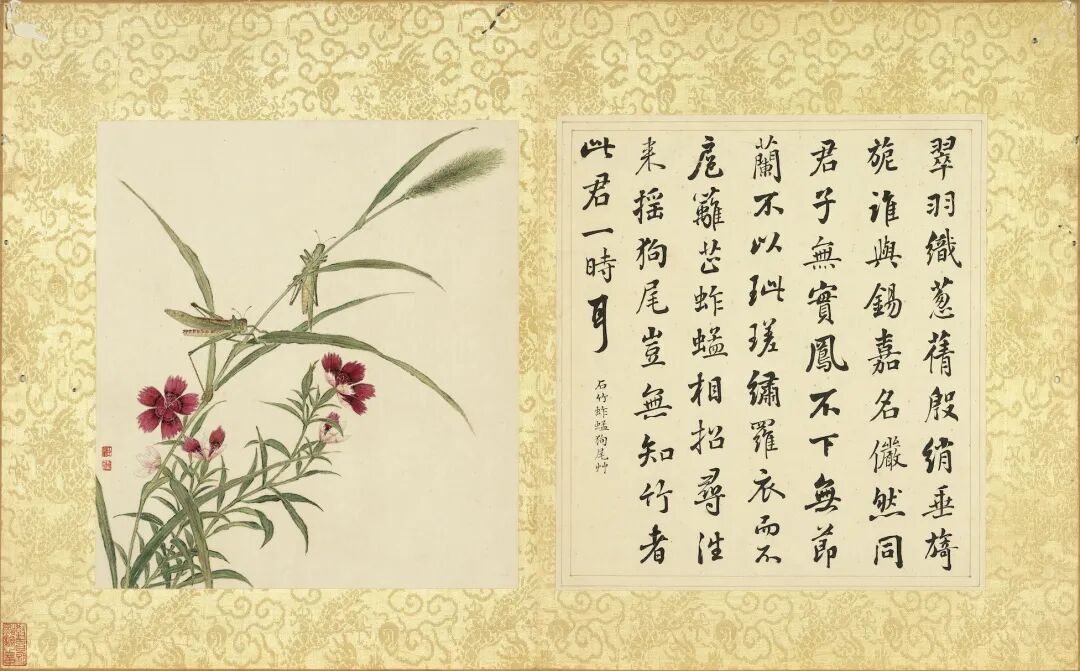 翠羽織葱蒨殷綃垂旖
旎誰與錫嘉名儼然同
君子無實鳳不下無節
蘭不以玼瑳繡羅衣而不
扈蘺芷蚱蜢相招尋往
来摇狗尾豈無知竹者
此君一時耳
石竹蚱蜢狗尾艸